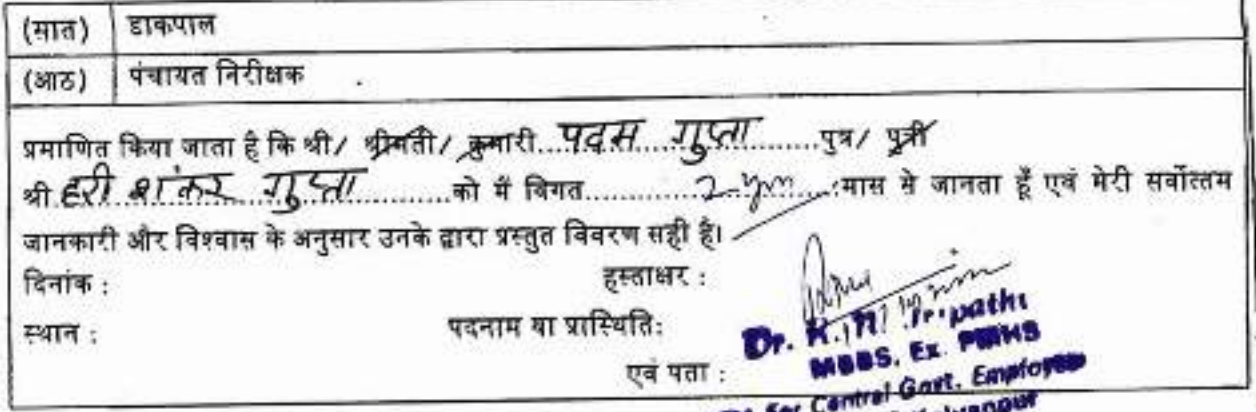 (सात) डाकपाल
(आठ) पंचायत निरीक्षक
प्रमाणित किया जाता है कि श्री/ श्रीमती/ कुमारी...पदम गुप्ता...पुत्र/ पुत्री
श्री हरी शंकर गुप्ता...को मैं विगत...मास से जानता हूँ एवं मेरी सर्वोत्तम
जानकारी और विश्वास के अनुसार उनके द्वारा प्रस्तुत विवरण सही है।
दिनांक : हस्ताक्षर :
स्थान : पदनाम या प्रास्थिति:
Dr. K. N. Tripathi
MBBS, Ex. PMHS
एवं पता :
For Central Govt. Employee